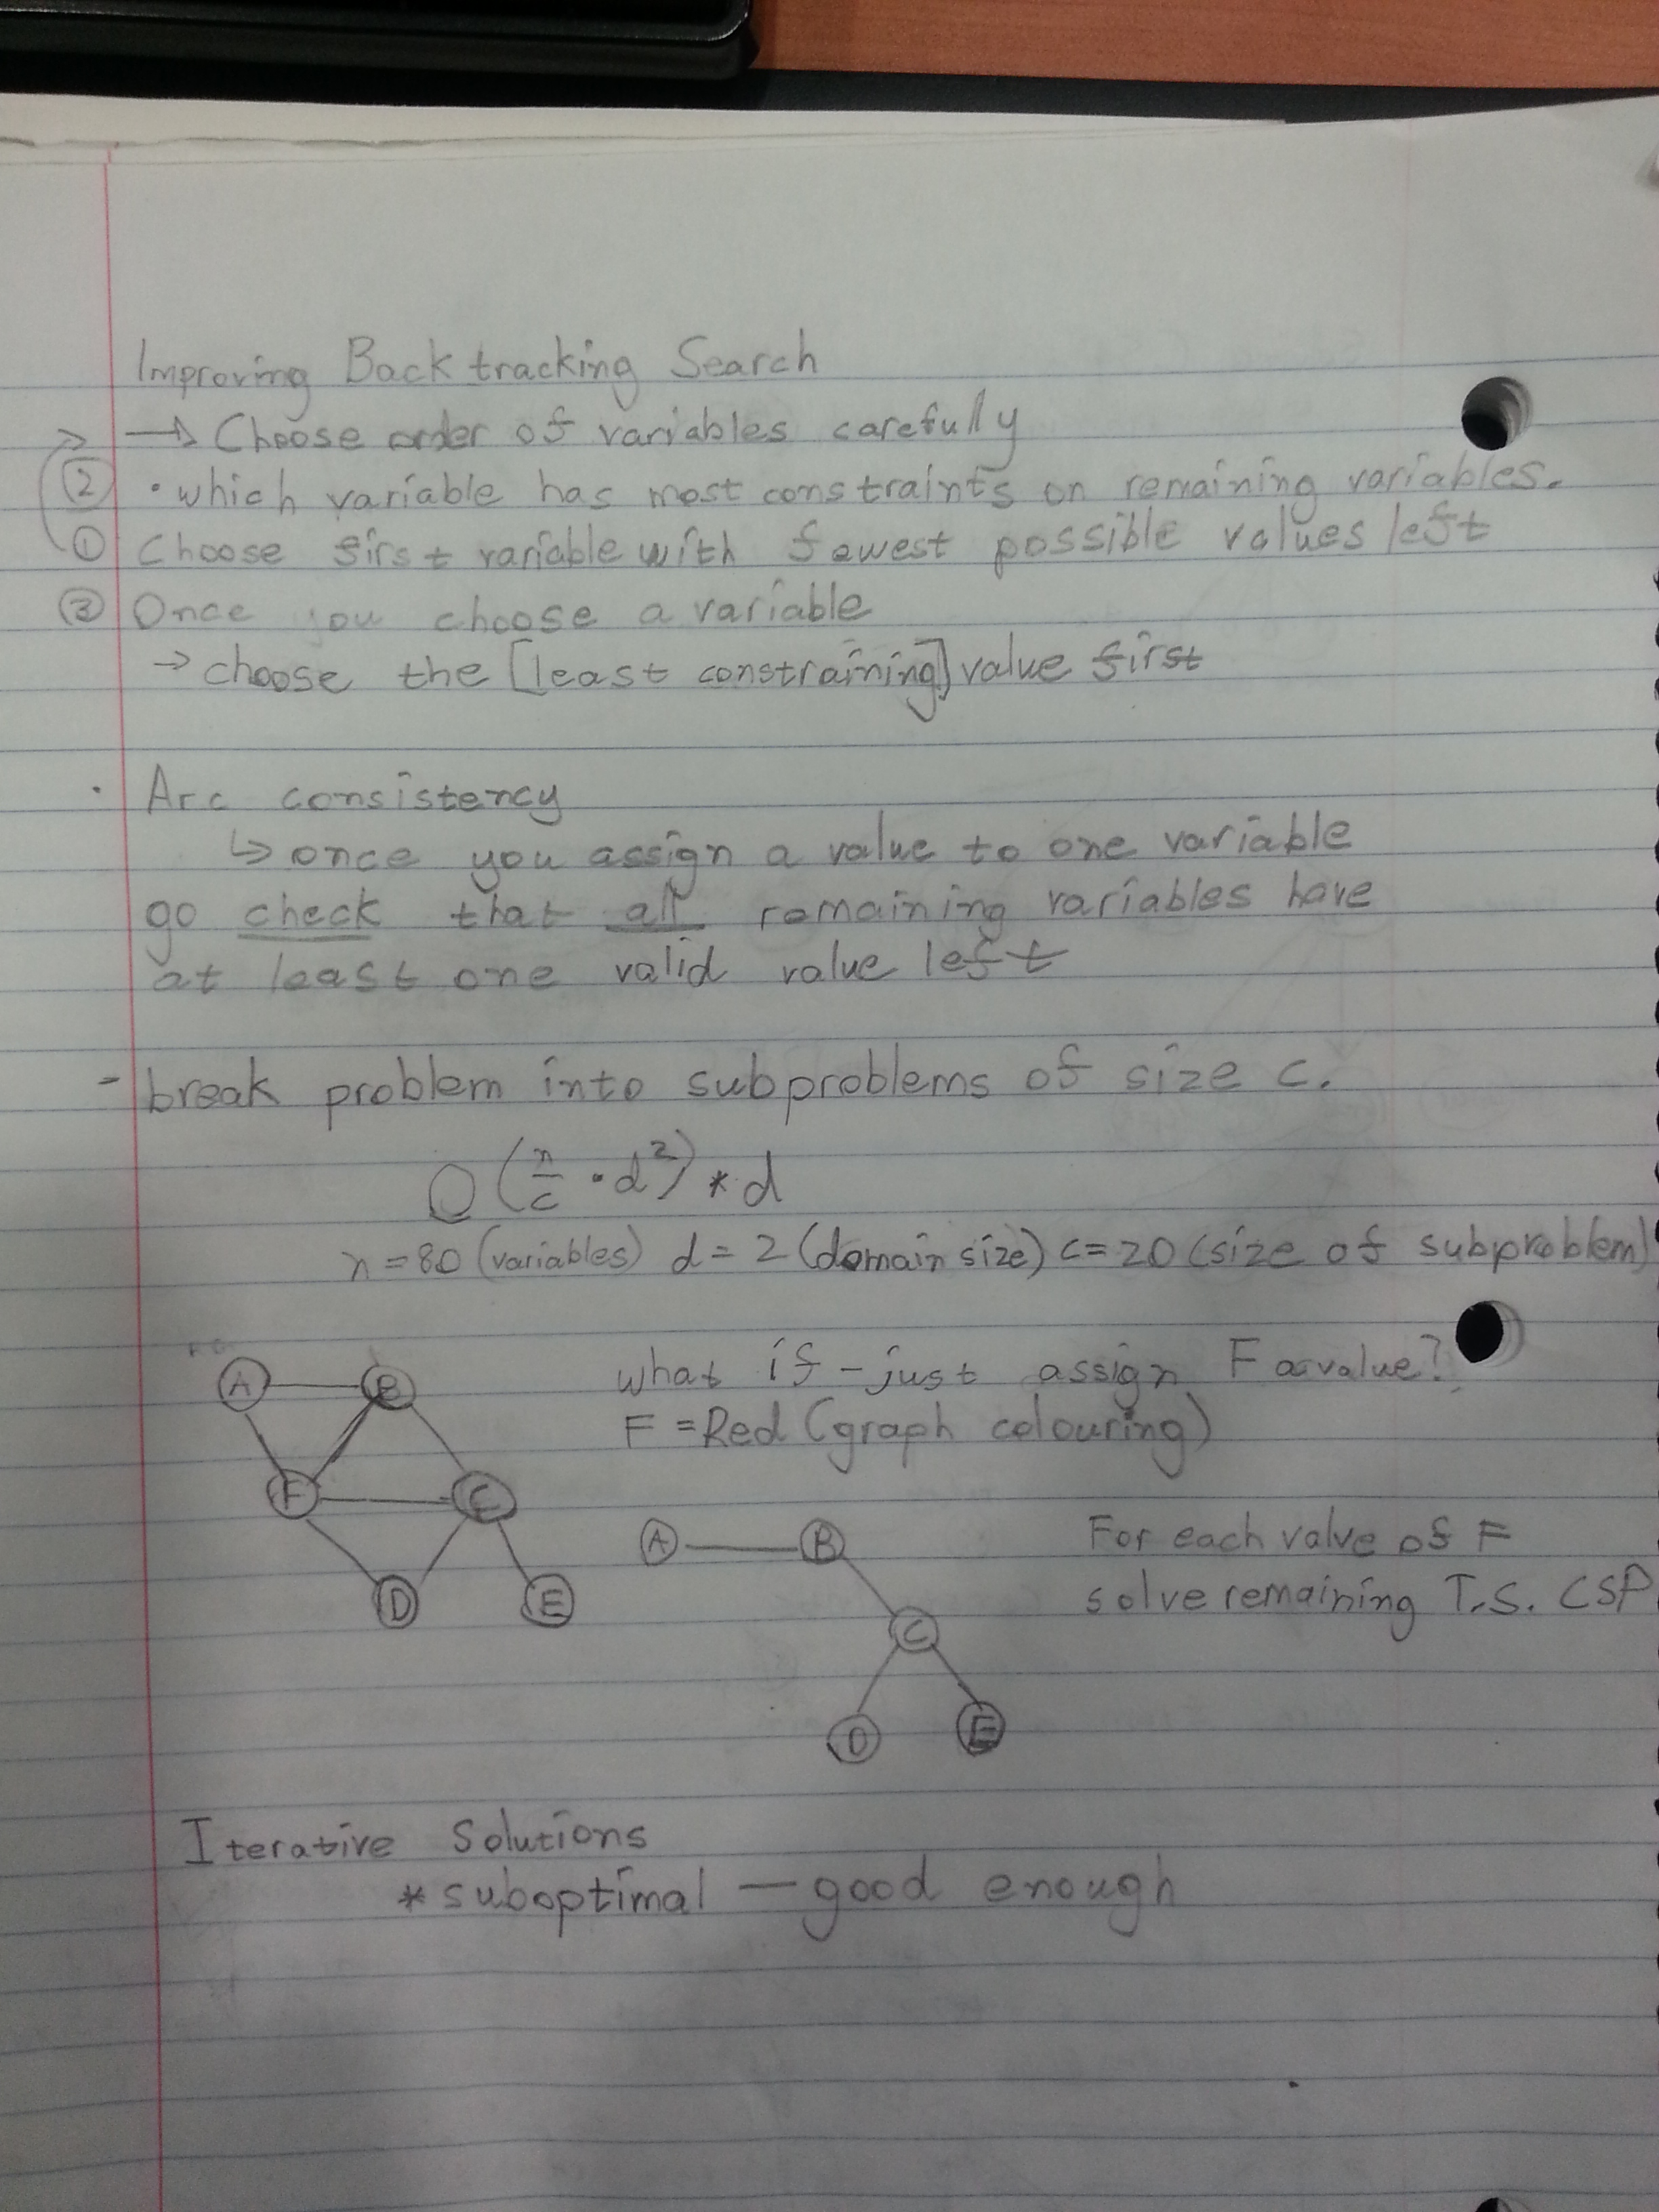 Improving Backtracking Search
→ Choose order of variables carefully
② • which variable has most constraints on remaining variables.
① Choose first variable with fewest possible values left
③ Once you choose a variable
→ choose the [least constraining] value first
· Arc consistency
↳ once you assign a value to one variable
go check that all remaining variables have
at least one valid value left
- break problem into subproblems of size c.
O(n/c · d²) * d
n = 80 (variables) d = 2 (domain size) c = 20 (size of subproblem)
A B
what if - just assign F a value?
F = Red (graph colouring)
F C
A B
For each value of F
D E
solve remaining T.S. CSP
C
D E
Iterative Solutions
* suboptimal — good enough